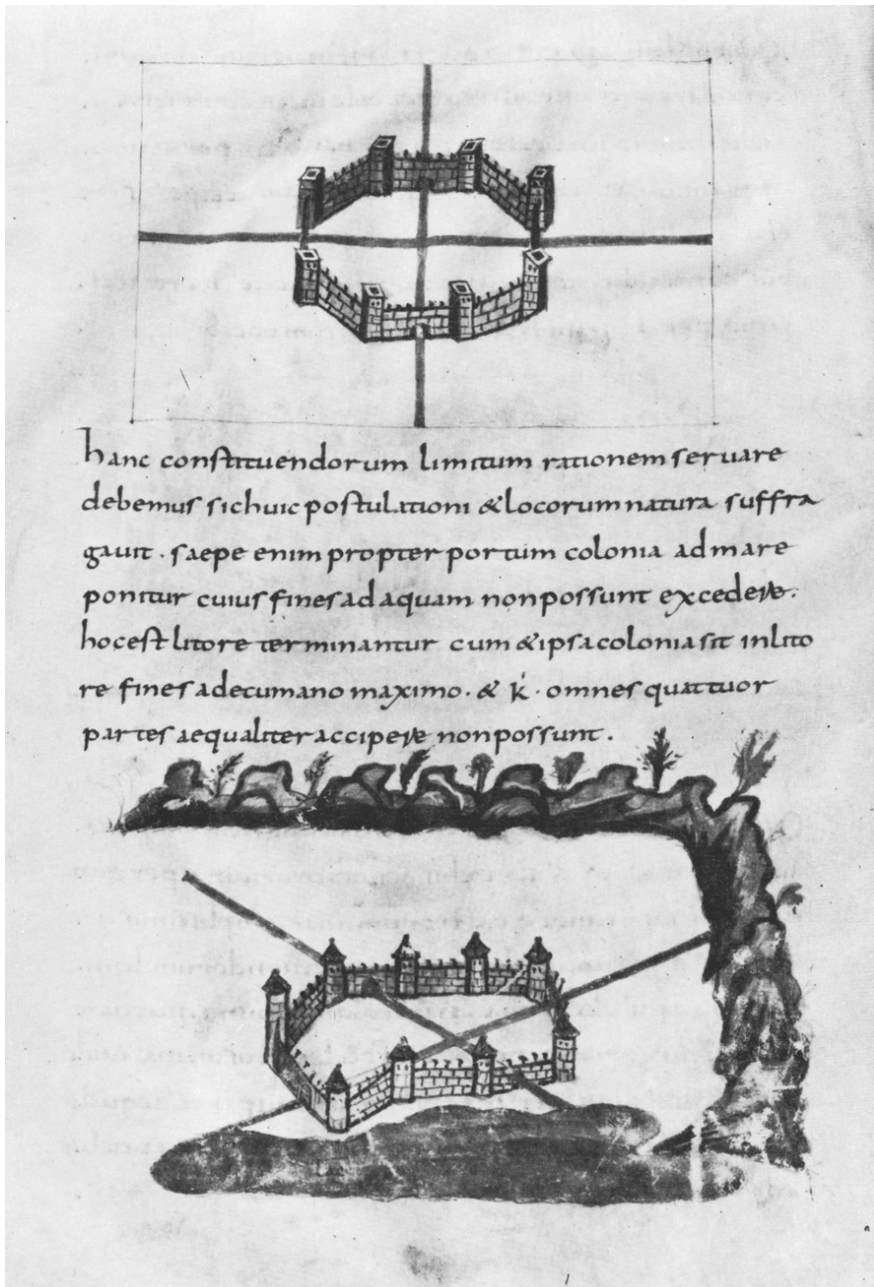 hanc constituendorum limitum rationem seruare
debemus si huic postulationi & locorum natura suffra
gauit · saepe enim propter portum colonia ad mare
ponitur cuius fines ad aquam non possunt excedere ·
hoc est litore terminantur cum & ipsa colonia sit in lito
re fines a decumano maximo · & k̇ · omnes quattuor
partes aequaliter accipere non possunt ·